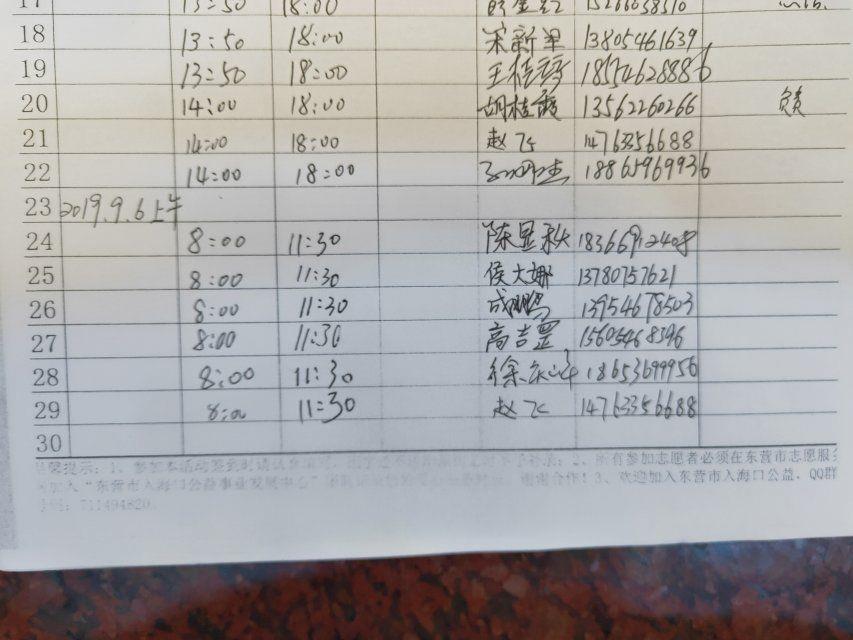 17 13:50 18:00 15266038510
18 13:50 18:00 宋新军 13805461639
19 13:50 18:00 王佳琦 18554628886
20 14:00 18:00 胡桂霞 13562260266 负责
21 14:00 18:00 赵飞 14763356688
22 14:00 18:00 18865969936
23 2019.9.6上午
24 8:00 11:30 陈显秋 18366912408
25 8:00 11:30 侯大娜 13780757621
26 8:00 11:30 成鹏 13954678503
27 8:00 11:30 高吉罡 15605468396
28 8:00 11:30 徐永峰 18653699956
29 8:00 11:30 赵飞 14763356688
30
温馨提示：1、参加本活动签到时请认真填写， 2、所有参加志愿者必须在东营市志愿服务
加入“东营市入海口公益事业发展中心” 谢谢合作！3、欢迎加入东营市入海口公益，QQ群
号码：711494820。